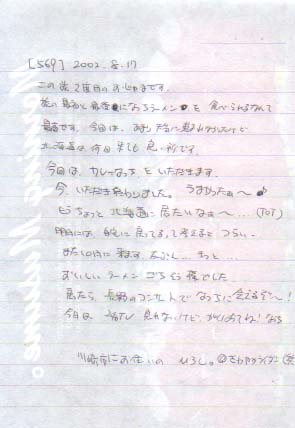 [569] 2002.8.17
この差 2度目のおじゃまです。
差の最初と最後になるラーメンを食べられるなんて
最高です。今回は、あまり天気に恵まれないけど
北海道は何回来ても良い所です。
今回は、カレーなっちをいただきます。
今、いただき終わりました。うまかったぁ〜♪
もうちょっと北海道に居たいなぁ〜…(ToT)
明日には、家に居てるって考えると つらい…
また10月に来ます。たぶん… きっと…
おいしいラーメン ごちそう様でした
帰ったら、長野のコンサートでなっちに会えるぞ〜!
今日は TV 見れないけど、がんばってね! なっち
川崎市にお住いの ひろし。@さわやかライダー(笑)
Morning Musume。